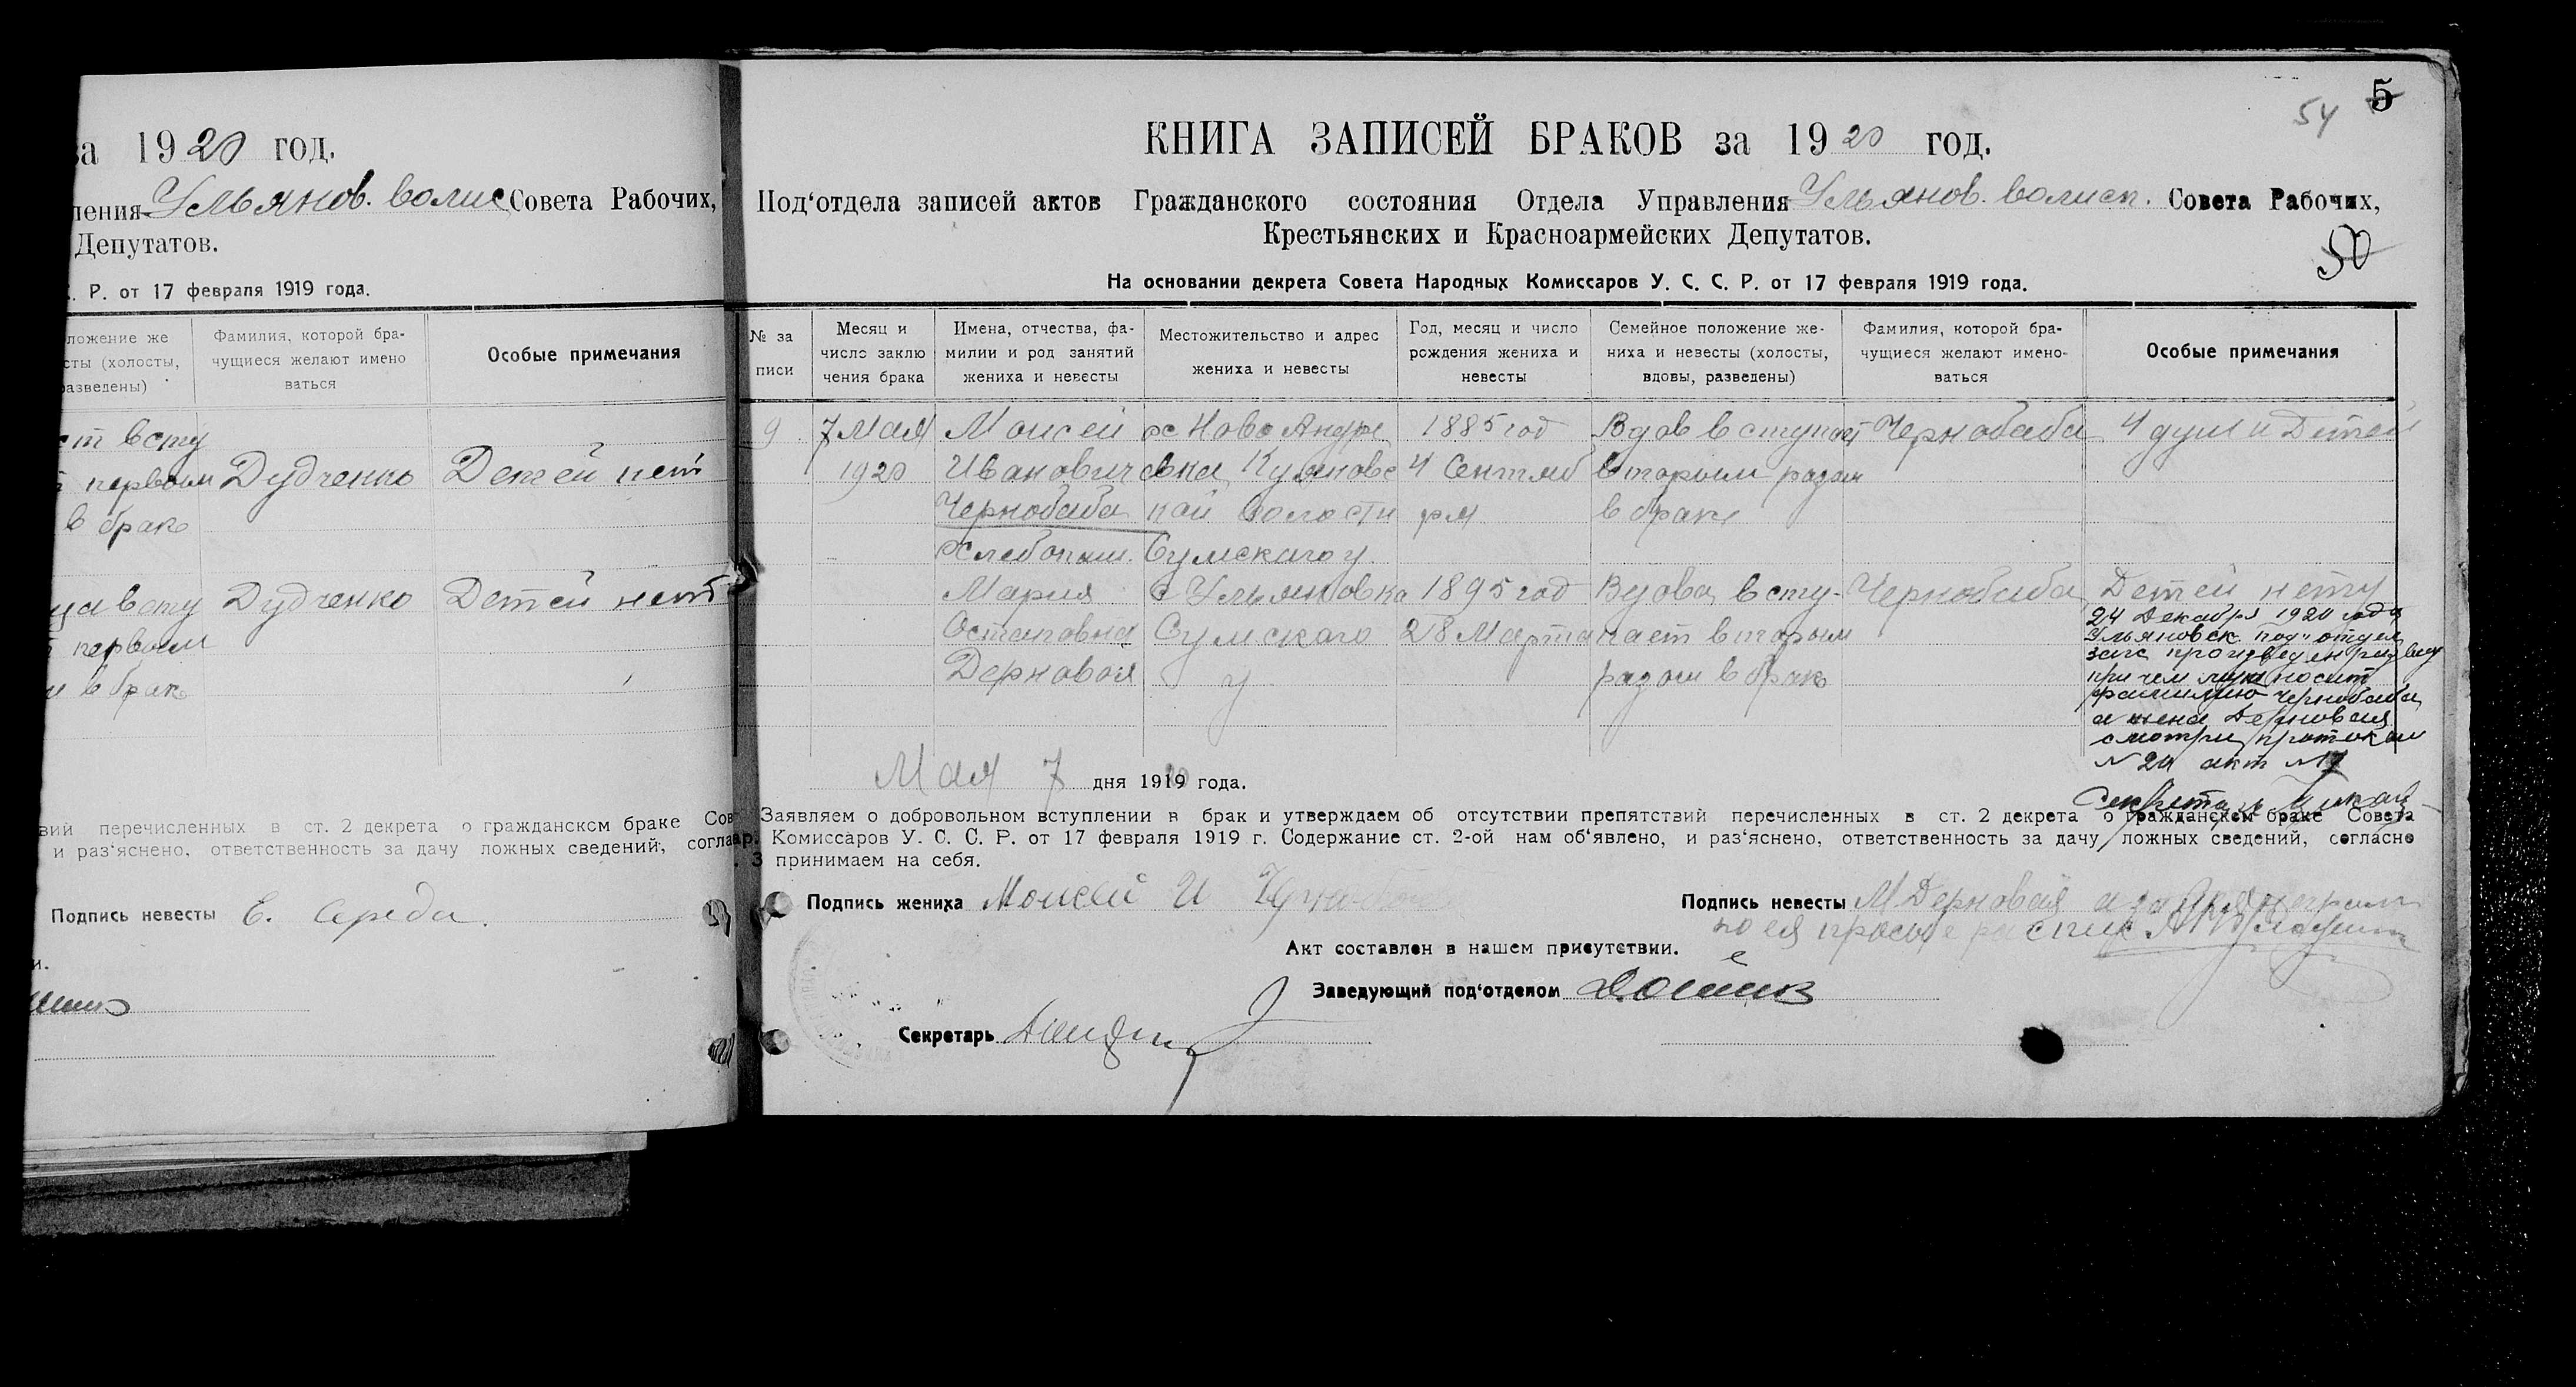 за 1920 год.
ления Ульянов. волис Совета Рабочих,
Депутатов.
С. Р. от 17 февраля 1919 года.
ложение же
сты (холосты,
разведены)
Фамилия, которой бра-
чущиеся желают имено
ваться
Особые примечания
ст всту
первым Дудченко Детей нет
в брак
ца всту Дудченко Детей нет
первым
в брак
вий перечисленных в ст. 2 декрета о гражданском браке Сов
и раз'яснено, ответственность за дачу ложных сведений, согла
Подпись невесты Е. Середа.
и.
5
54
КНИГА ЗАПИСЕЙ БРАКОВ за 1920 год.
Под'отдела записей актов Гражданского состояния Отдела Управления Ульянов. волисп. Совета Рабочих,
Крестьянских и Красноармейских Депутатов.
50
На основании декрета Совета Народных Комиссаров У. С. С. Р. от 17 февраля 1919 года.
№ за
писи
Месяц и
число заклю
чения брака
Имена, отчества, фа-
милии и род занятий
жениха и невесты
Местожительство и адрес
жениха и невесты
Год, месяц и число
рождения жениха и
невесты
Семейное положение же-
ниха и невесты (холосты,
вдовы, разведены)
Фамилия, которой бра-
чущиеся желают имено-
ваться
Особые примечания
9 7 Мая Моисей х Ново Андре 1885 год Вдов вступает Чернобаба 4 души Детей
1920 Иванович евка Куяновс 4 Сентяб вторым разом
Чернобаба кой волости ря в брак
хлебопаш. Сумскаго у
Мария с Ульяновка 1895 год Вдова всту- Чернобаба Детей нету
Остаповна Сумскаго 28 Марта пает вторым
Дерновая у разом в брак
24 Декабря 1920 года
Ульяновск. под'отдел
загс произведен развод
при чем муж носит
фамилию Чернобаба
а жена Дерновая
смотри протокол
№ 20 акт № 17
Секретарь
Мая 7 дня 1919 года.
Заявляем о добровольном вступлении в брак и утверждаем об отсутствии препятствий перечисленных в ст. 2 декрета о гражданском браке Совета
ар. Комиссаров У. С. С. Р. от 17 февраля 1919 г. Содержание ст. 2-ой нам об'явлено, и раз'яснено, ответственность за дачу ложных сведений, согласно
. 3 принимаем на себя.
Подпись жениха Моисей И Чернобаба
Подпись невесты М Дерновая а за
по ея просьбе распис
Акт составлен в нашем присутствии.
Заведующий под'отделом
Секретарь